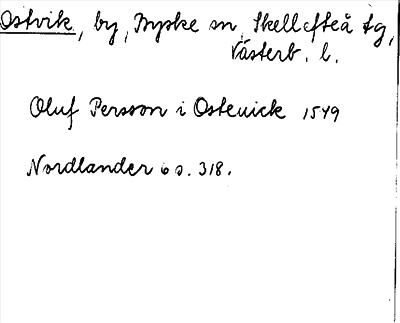 Ostvik, by, Byske sn, Skellefteå tg,
Västerb. l.
Oluf Persson i Osteuick 1549
Nordlander 6 s. 318.